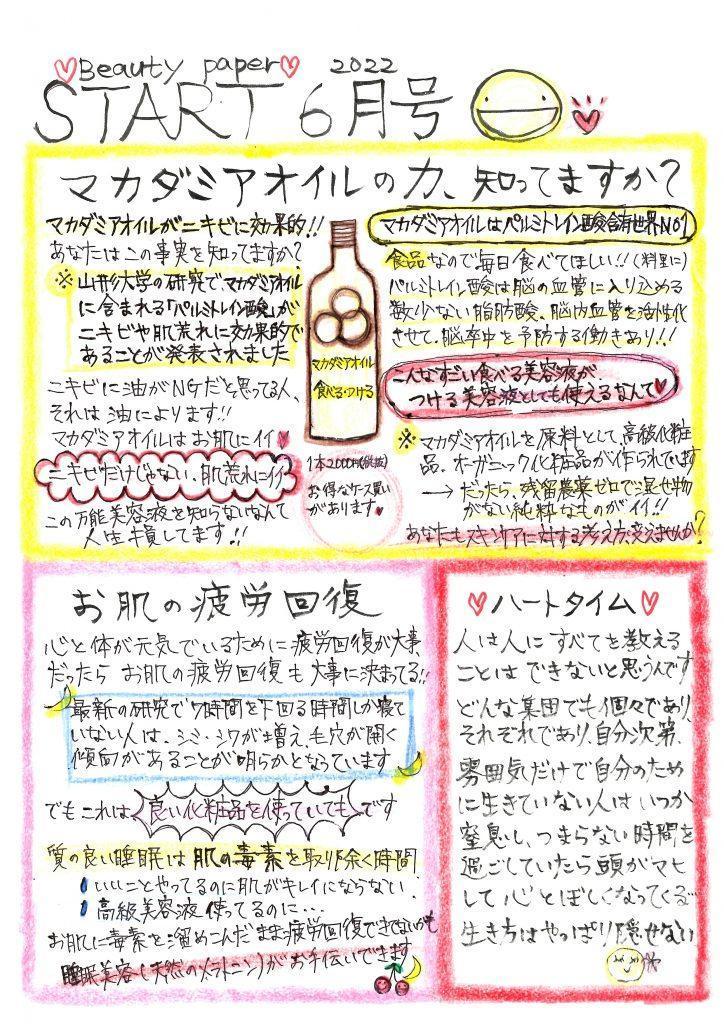 Beauty paper 2022
START 6月号
マカダミアオイルの力、知ってますか?
マカダミアオイルがニキビに効果的!!
あなたはこの事実を知ってますか?
※山形大学の研究でマカダミアオイル
に含まれる「パルミトレイン酸」が
ニキビや肌荒れに効果的で
あることが発表されました
ニキビに油がNGだと思ってる人、
それは油によります!!
マカダミアオイルはお肌にイイ
ニキビだけじゃない、肌荒れにイイ
この万能美容液を知らないなんて
人生損してます!!
マカダミアオイル
食べる・つける
1本2000円(税抜)
お得なケース買い
があります。
マカダミアオイルはパルミトレイン酸含有世界No1
食品なので毎日食べてほしい!!(料理に)
パルミトレイン酸は脳の血管に入り込める
数少ない脂肪酸、脳内血管を活性化
させて、脳卒中を予防する働きあり!!
こんなすごい食べる美容液が
つける美容液としても使えるなんて
※マカダミアオイルを原料として、高級化粧
品、オーガニック化粧品が作られています
→だったら、残留農薬ゼロで混ぜ物
がない純粋なものがイイ!!
あなたもスキンケアに対する考え方、変えませんか?
お肌の疲労回復
心と体が元気でいるために疲労回復が大事
だったらお肌の疲労回復も大事に決まってる!!
最新の研究で7時間を下回る時間しか寝て
いない人は、シミ・シワが増え、毛穴が開く
傾向があることが明らかとなっています
でもこれは良い化粧品を使っていてもです
質の良い睡眠は肌の毒素を取り除く時間
いいことやってるのに肌がキレイにならない
高級美容液使ってるのに…
お肌に毒素を溜めこんだまま疲労回復できてないかも
睡眠美容(天然のメラトニン)がお手伝いできます
ハートタイム
人は人にすべてを教える
ことはできないと思うんです
どんな集団でも個々であり、
それぞれであり、自分次第、
雰囲気だけで自分のため
に生きていない人はいつか
窒息し、つまらない時間を
過ごしていたら頭がマヒ
して心とぼしくなってくる
生き方はやっぱり隠せない